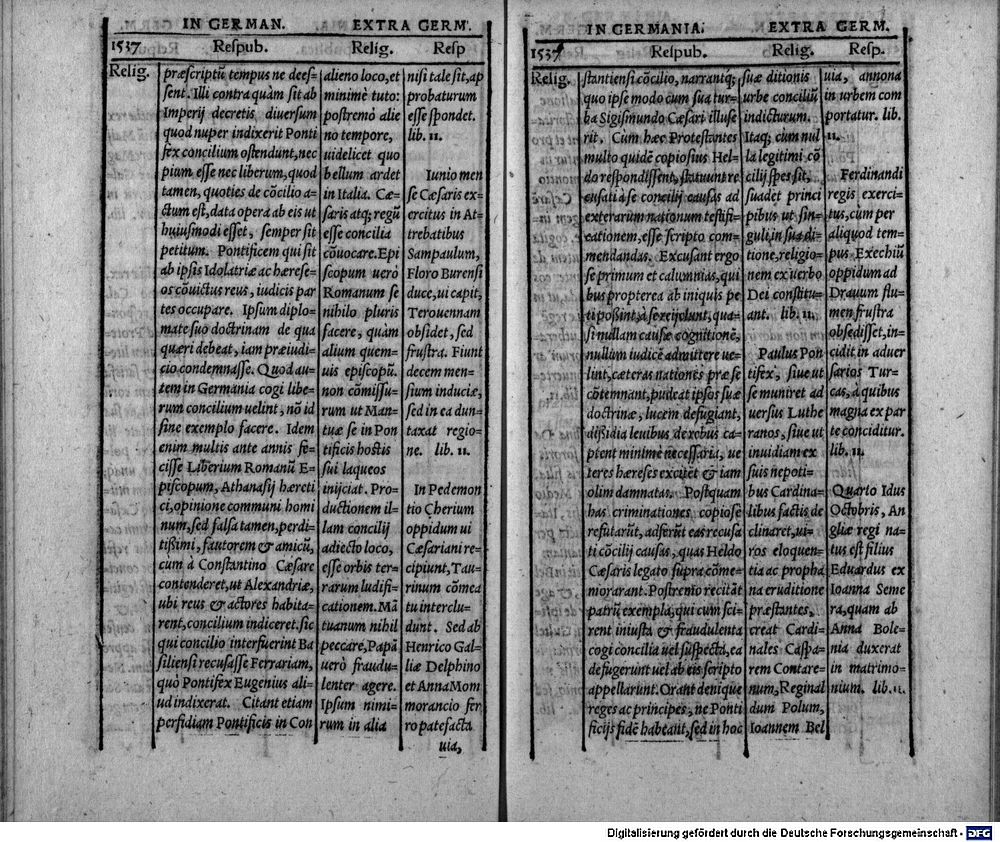 IN GERMAN.
EXTRA GERM.
1537
Respub.
Relig.
Resp
Relig.
præscriptũ tempus ne dees-
sent. Illi contra quàm sit ab
Imperij decretis diuersum
quod nuper indixerit Ponti
fex concilium ostendunt, nec
pium esse nec liberum, quod
tamen, quoties de cõcilio a-
ctum est, data opera ab eis ut
huiusmodi esset, semper sit
petitum. Pontificem qui sit
ab ipsis Idolatriæ ac hærese-
os cõuictus reus, iudicis par
tes occupare. Ipsum diplo-
mate suo doctrinam de qua
quæri debeat, iam præiudi-
cio condemnasse. Quod au-
tem in Germania cogi libe-
rum concilium uelint, nõ id
sine exemplo facere. Idem
enim multis ante annis fe-
cisse Liberium Romanũ E-
piscopum, Athanasij hæreti
ci, opinione communi homi
num, sed falsa tamen, perdi-
tißimi, fautorem & amicũ,
cum à Constantino Cæsare
contenderet, ut Alexandriæ,
ubi reus & actores habita-
rent, concilium indiceret. sic
qui concilio interfuerint Ba
siliensi recusasse Ferrariam,
quò Pontifex Eugenius ali-
ud indixerat. Citant etiam
perfidiam Pontificis in Con
alieno loco, et
minimè tuto:
postremò alie
no tempore,
uidelicet quo
bellum ardet
in Italia. Cæ-
saris atq; regũ
esse concilia
cõuocare. Epi
scopum uerò
Romanum se
nihilo pluris
facere, quàm
alium quem-
uis episcopũ.
non cõmissu-
rum ut Man-
tuæ se in Pon
tificis hostis
sui laqueos
inijciat. Pro-
ductionem il-
lam concilij
adiecto loco,
esse orbis ter-
rarum ludifi-
cationem. Mã
tuanum nihil
peccare, Papã
uerò fraudu-
lenter agere.
Ipsum nimi-
rum in alia
nisi tale sit, ap
probaturum
esse spondet.
lib. 11.
Iunio men
se Cæsaris ex-
ercitus in At-
trebatibus
Sampaulum,
Floro Burensi
duce, ui capit,
Terouennam
obsidet, sed
frustra. Fiunt
decem men-
sium induciæ,
sed in ea dun-
taxat regio-
ne. lib. 11.
In Pedemon
tio Cherium
oppidum ui
Cæsariani re-
cipiunt, Tau-
rinum cõmea
tu interclu-
dunt. Sed ab
Henrico Gal-
liæ Delphino
et Anna Mom
morancio fer
ro patefacta
uia,
IN GERMANIA.
EXTRA GERM.
1537
Respub.
Relig.
Resp.
Relig.
stantiensi cõcilio, narrantq;
quo ipse modo cum sua tur-
ba Sigismundo Cæsari illuse
rit. Cum hæc Protestantes
multo quidẽ copiosius Hel-
do respondissent, statuunt re
cusati à se concilij causas ad
exterarum nationum testifi-
cationem, esse scripto com-
mendandas. Excusant ergo
se primum et calumnias, qui
bus propterea ab iniquis pe
ti poßint, à se reijciunt, qua-
si nullam causæ cognitionẽ,
nullum iudicẽ admittere ue-
lint, cæteras nationes præ se
cõtemnant, pudeat ipsos suæ
doctrinæ, lucem defugiant,
dißidia leuibus de rebus ca-
ptent minimè necessaria, ue
teres hæreses excitẽt & iam
olim damnatas. Postquam
has criminationes copiosè
refutarũt, adserũt eas recusa
ti cõcilij causas, quas Heldo
Cæsaris legato supra cõme-
morarant. Postremo recitãt
patrũ exempla, qui cum sci-
rent iniusta & fraudulenta
cogi concilia uel suspecta, ea
defugerunt uel ab eis scripto
appellarunt. Orant denique
reges ac principes, ne Ponti
ficijs fidẽ habeant, sed in hoc
suæ ditionis
urbe conciliũ
indicturum.
Itaq; cum nul
la legitimi cõ
cilij spes sit,
suadet princi
pibus ut sin-
guli, in sua di-
tione, religio-
nem ex uerbo
Dei constitu-
ant. lib. 11.
Paulus Pon
tifex, siue ut
se muniret ad
uersus Luthe
ranos, siue ut
inuidiam ex
suis nepoti-
bus Cardina-
libus factis de
clinaret, ui-
ros eloquen-
tia ac propha
na eruditione
præstantes,
creat Cardi-
nales Caspa-
rem Contare-
num, Reginal
dum Polum,
Ioannem Bel
uia, annona
in urbem com
portatur. lib.
11.
Ferdinandi
regis exerci-
tus, cum per
aliquod tem-
pus Exechiũ
oppidum ad
Drauum flu-
men frustra
obsedisset, in-
cidit in aduer
sarios Tur-
cas, à quibus
magna ex par
te conciditur.
lib. 11.
Quarto Idus
Octobris, An
gliæ regi na-
tus est filius
Eduardus ex
Ioanna Seme
ra, quam ab
Anna Bole-
nia duxerat
in matrimo-
nium. lib. 11.
Digitalisierung gefördert durch die Deutsche Forschungsgemeinschaft - DFG